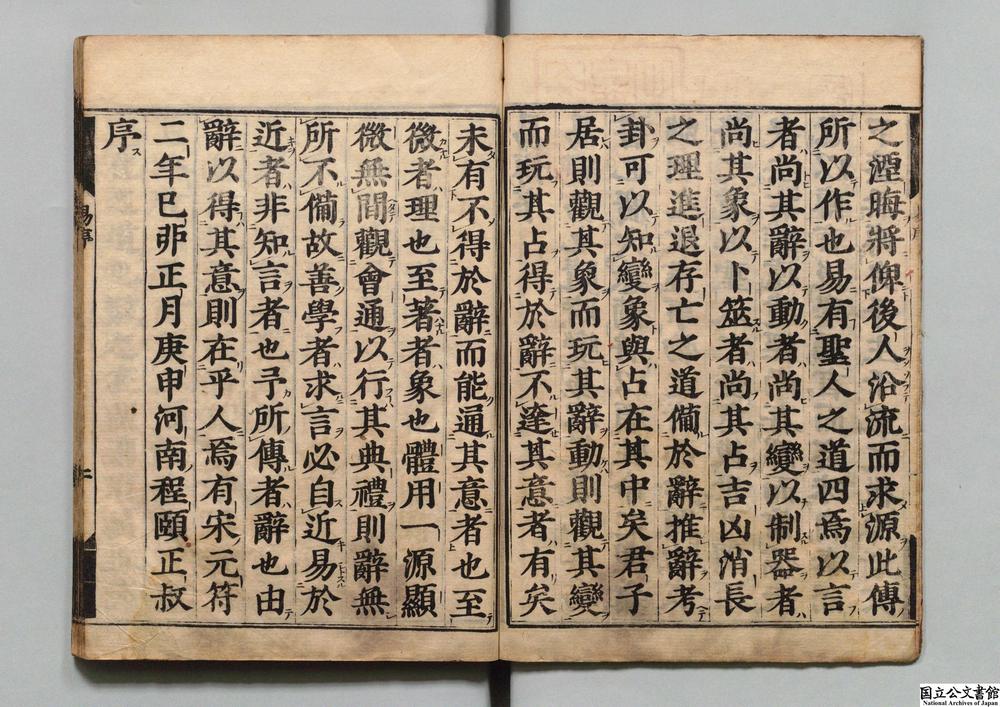 之湮晦將俾後人沿流而求源此傳
所以作也易有聖人之道四焉以言
者尚其辭以動者尚其變以制器者
尚其象以卜筮者尚其占吉凶消長
之理進退存亡之道備於辭推辭考
卦可以知變象與占在其中矣君子
居則觀其象而玩其辭動則觀其變
而玩其占得於辭不達其意者有矣
未有不得於辭而能通其意者也至
微者理也至著者象也體用一源顯
微無間觀會通以行其典禮則辭無
所不備故善學者求言必自近易於
近者非知言者也予所傳者辭也由
辭以得其意則在乎人焉有宋元符
二年己卯正月庚申河南程頤正叔
序
易序
二
国立公文書館
National Archives of Japan